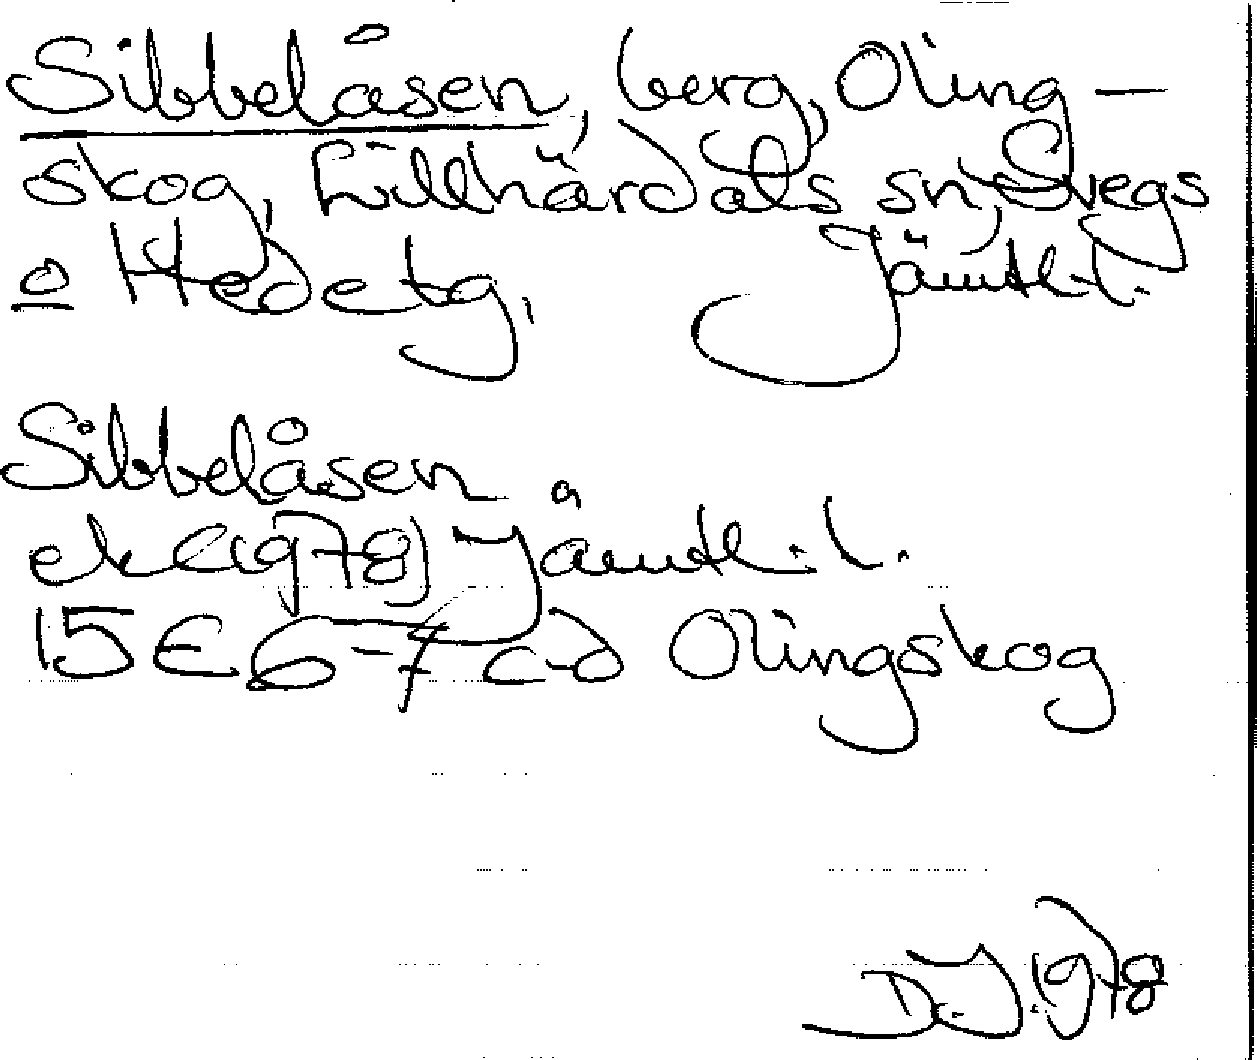 Sibbelåsen, berg, Oling-
skog, Lillhärdals sn, Svegs
o Hede tg, Jämtl. l.
Sibbelåsen
ekbl (1978) Jämtl. l.
15 E 6-7 c-d Olingskog
D.J. 1978